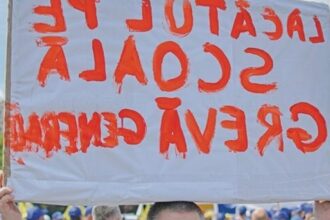 LACĂTUL PE
SCOALĂ
GREVĂ GENERALĂ